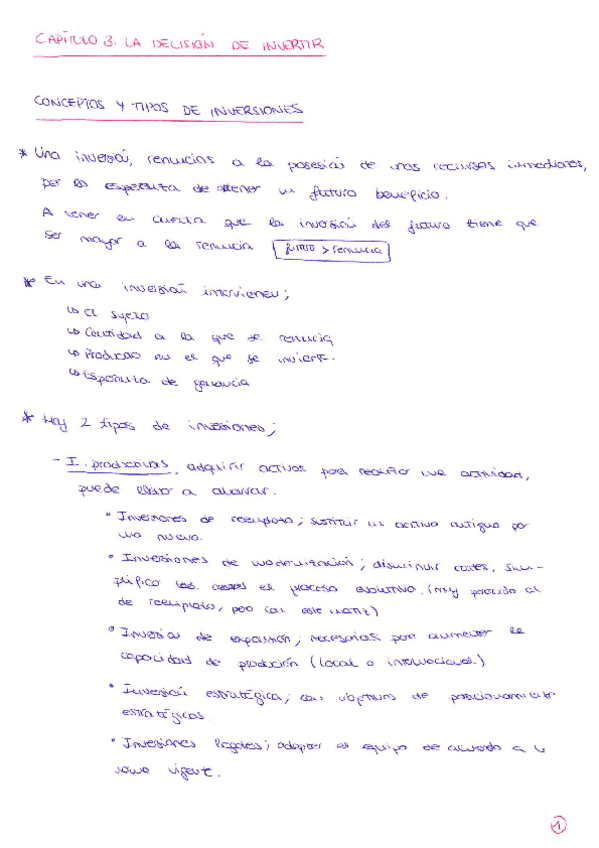 CAPÍTULO 3. LA DECISIÓN DE INVERTIR
CONCEPTOS Y TIPOS DE INVERSIONES
* Una inversión, renuncias a la posesión de unos recursos inmediatos,
por la esperanza de obtener un futuro beneficio.
A tener en cuenta que la inversión del futuro tiene que
ser mayor a la renuncia futuro > renuncia
* En una inversión intervienen;
↳ El sujeto
↳ Cantidad a la que se renuncia
↳ Producto en el que se invierte.
↳ Esperanza de ganancia
* Hay 2 tipos de inversiones;
- I. productivas, adquirir activos para realizar una actividad,
puede a
• Inversiones de reemplazo; sustituir un activo antiguo por
uno nuevo.
• Inversiones de modernización; disminuir costes, sim-
plifico el proceso (muy parecido al
de reemplazo, pero con este matiz)
• Inversión de expansión; necesarias para aumentar la
capacidad de produción (local o internacional.)
• Inversión estratégica; con objetivos de posicionamiento
estratégicos.
• Inversiones legales; adaptar el equipo de acuerdo a
vigente.
1